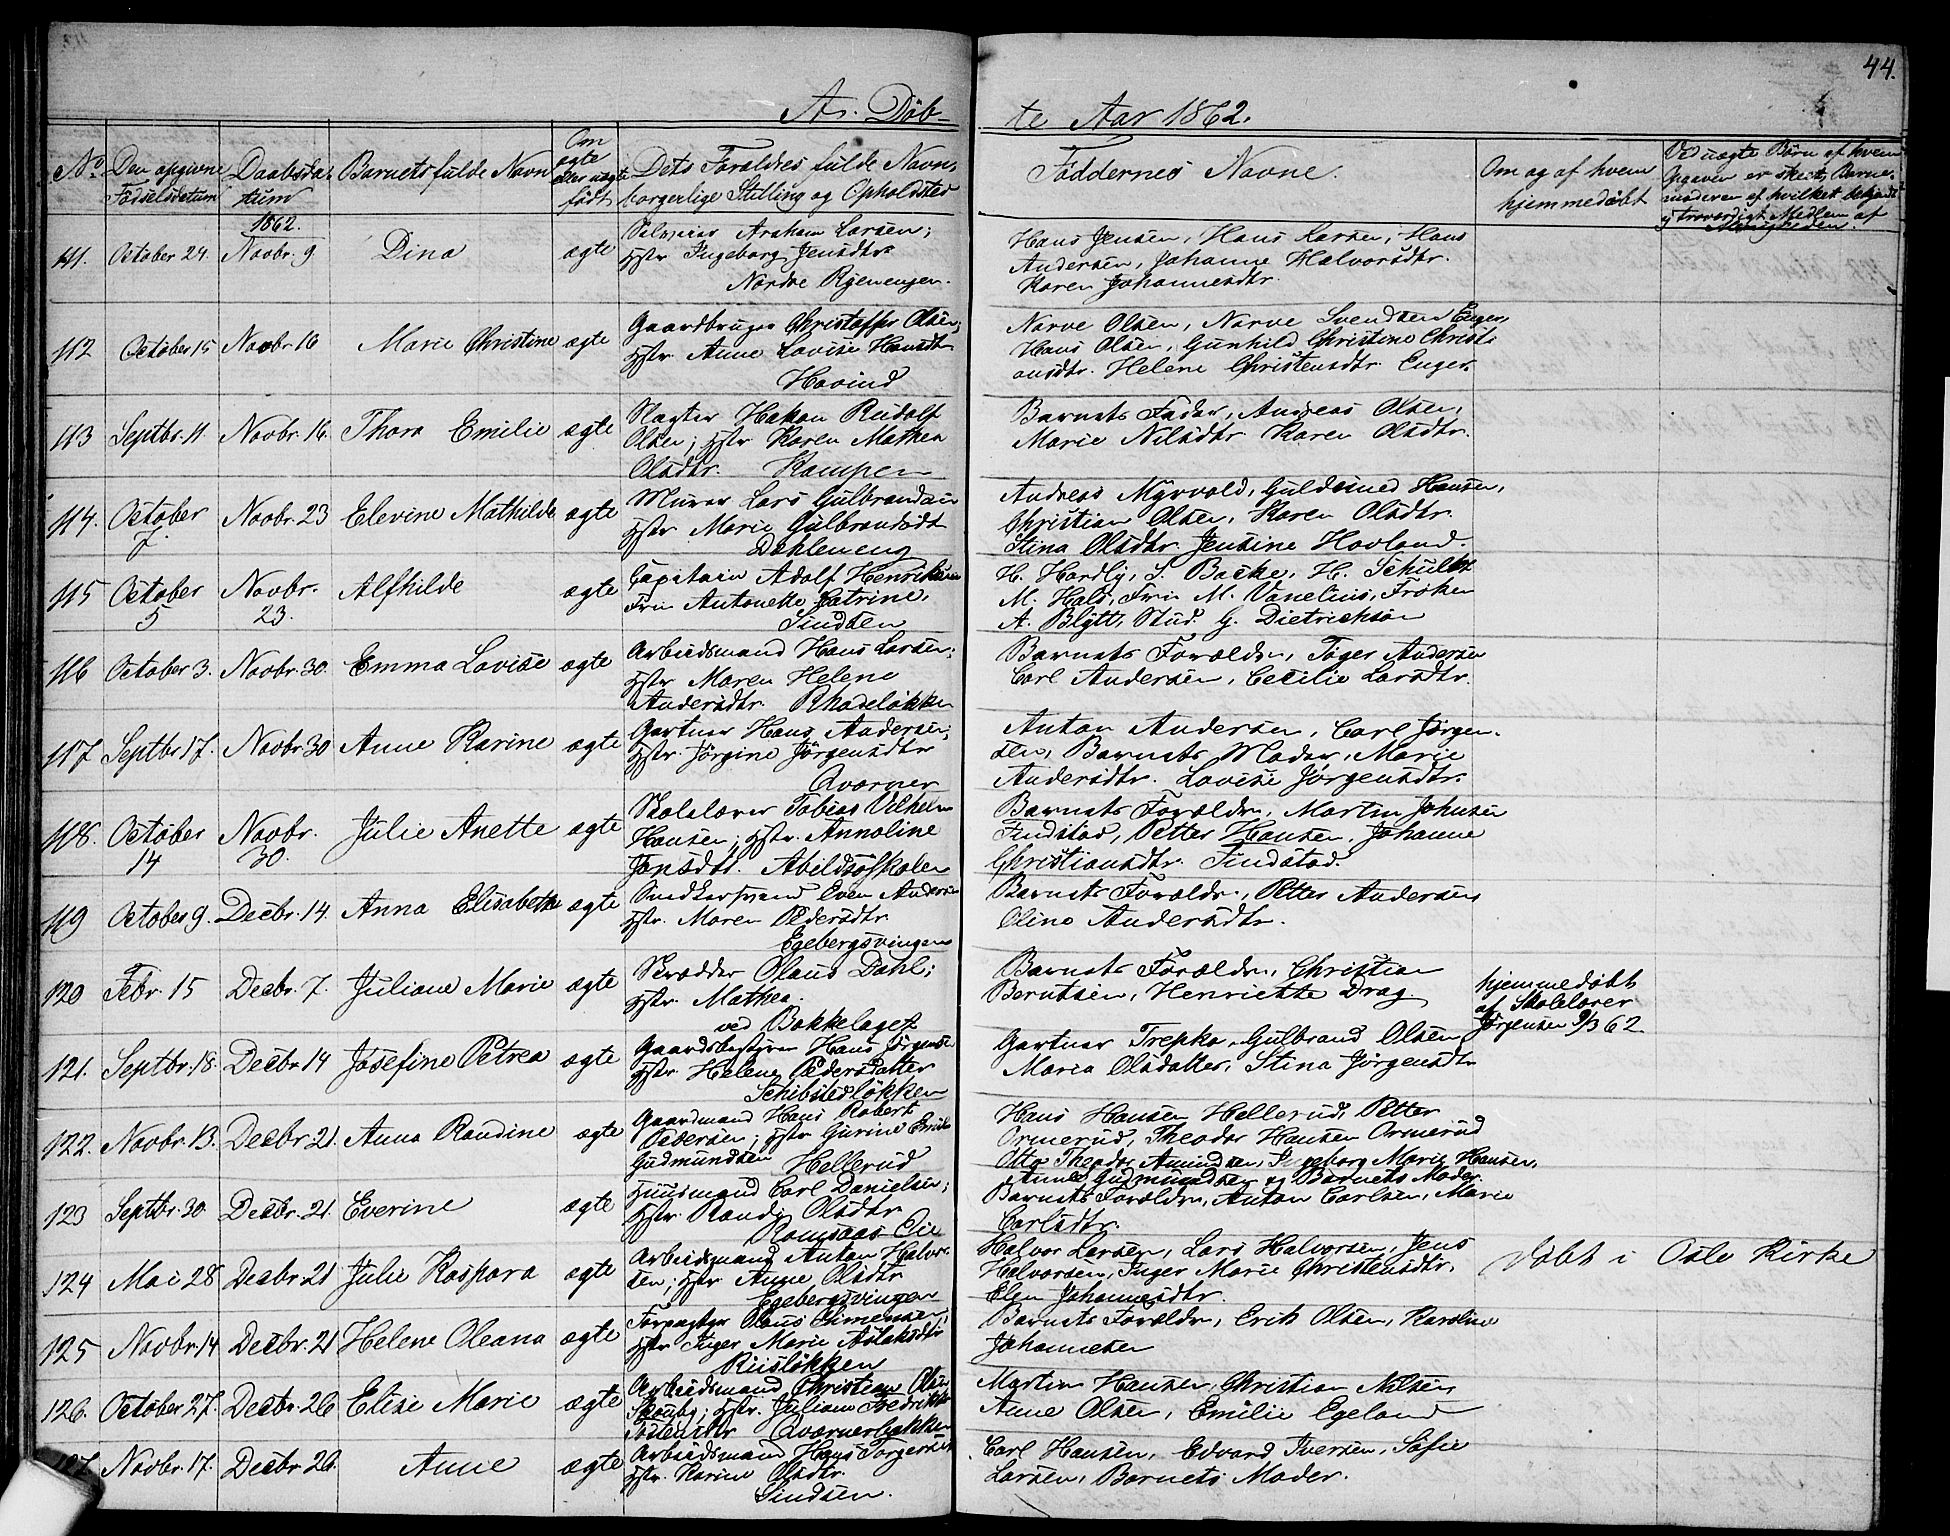 44.
A. Döb-
te Aar 1862.
No Den opgivne Födselsdatum
Daabsdatum
Barnets fulde Navn
Om ægte eller uægte født
Dets Forældres fulde Navn, borgerlige Stilling og Opholdsted
Faddernes Navne.
Om og af hvem hjemmedøbt
Ved uægte Børn af hvem Opgaven er skeet,
1862.
111. October 24. Novbr. 9 Dina ægte
Larsen;
Hstr Ingeborg Jensdtr.
Nordre
Hans Jensen, Hans Larsen, Hans
Andersen, Johanne Halvorsdtr.
Karen Johannesdtr.
112 October 15 Novbr. 16 Marie Christine ægte
Gaardbruger Christoffer Olsen;
Hstr Anne Lovise Hansdtr
Hovind
Narve Olsen, Narve Svendsen Enger,
Hans Olsen, Gunhild Christine Christi
ansdtr. Helene Christensdtr. Enger.
113 Septbr. 11. Novbr. 16. Thora Emilie ægte
Slagter Hakon Rudolf
Olsen; Hstr Karen Mathea
Olsdtr. Kampen
Barnets Fader, Andreas Olsen,
Marie Nilsdtr Karen Olsdtr.
114. October 7. Novbr. 23 Elevine Mathilde ægte
Murer Lars Gulbrandsen
Hstr Marie Gulbrandsdt
Dahleneng
Andreas Myrvold, Guldsmed Hansen,
Christian Olsen, Karen Olsdtr.
Stina Olsdtr. Jensine Hovland.
115 October 5 Novbr. 23. Alfhilde ægte
Capitain Adolf Henriksen
Fru Antonette Catrine.
Sindsen
H. Hardly, S. Backe, H. Schultz
M. Hals, Fru M. Vanelius, Frøken
A. Blytt, Stud. G. Dietrichson
116 October 3. Novbr. 30. Emma Lovise ægte
Arbeidsmand Hans Larsen;
Hstr Maren Helene
Andersdtr. Rhodeløkken
Barnets Forældre, Andersen
Carl Andersen, Cecilie Larsdtr.
117 Septbr. 17. Novbr. 30 Anne Karine ægte
Gartner Hans Andersen;
Hstr. Jörgine Jörgensdtr
Qværner
Anton Andersen, Carl Jörgen-
sen, Barnets Moder, Marie
Andersdtr. Lovise Jörgensdtr.
118. October 14 Novbr. 30. Julie Anette ægte
Skolelærer Tobias Vilhelm
Hansen; Hstr. Annoline
Jonsdtr. Abildsøskolen
Barnets Forældre, Martin Johnsen
Findstad, Petter Hansen, Johanne
Christiansdtr. Findstad
119 October 9. Decbr. 14. Anna Elisabeth ægte
Even Andersen
Hstr. Maren Pedersdtr
Egebergsvingen
Barnets Forældre, Petter Andersen
Oline Andersdtr.
120 Febr. 15 Decbr. 7. Juliane Marie ægte
Skrædder Olaus Dahl;
Hstr. Mathea.
ved Bækkelaget
Barnets Forældre, Christian
Berntsen, Henriette Drag
hjemmedøbt
af Skolelærer
Jørgensen 9/3 62
121. Septbr. 18. Decbr. 14 Josefine Petrea ægte
Gaardsbestyrer Hans Jörgensen
Hstr Helene Pedersdatter
Schibstedløkken
Gartner Trepka, Gulbrand Olsen,
Maria Olsdatter, Stina Jörgensdtr
122. Novbr. 13. Decbr. 21. Anna Randine ægte
Gaardmand Hans Robert
Pedersen; Hstr Gurine Emilie
Gudmundsen Hellerud
Hans Hansen Hellerud, Petter
Ormerud, Theodor Hansen Ormerud
Otto Theodor Amundsen, Ingeborg Marie Hansen,
Anne Gudmundsen og Barnets Moder.
123 Septbr. 30. Decbr. 21. Everine ægte
Huusmand Carl Danielsen;
Hstr. Randi Olsdtr
Romsaas Eie
Barnets Forældre, Anton Carlsen, Marie
Carlsdtr.
124 Mai 28 Decbr. 21 Julie Kaspara ægte
Arbeidsmand Anton Halvor-
sen; Hstr Anne Olsdtr
Egebergsvingen
Halvor Larsen, Lars Halvorsen, Jens
Halvorsen, Inger Marie Christensdtr.
Elen Johannesdtr.
Døbt i Oslo Kirke
125 Novbr. 14 Decbr. 21 Helene Oleana ægte
Forpagter Olaus Simensen,
Hstr Inger Marie Aslaksdtr
Riisløkken
Barnets Forældre, Erik Olsen, Karoline
Johannesen
126. October 27. Decbr. 26 Elise Marie ægte
Arbeidsmand Christian Olsen
Skouby; Hstr. Juliane Fredrikke
Qværnerbakken
Martin Hansen, Christian Nilsen,
Anne Olsen, Emilie Egeland
127. Novbr. 17. Decbr. 26. Anne ægte
Arbeidsmand Hans Torgersen
Hstr. Karine Olsdtr.
Sindsen.
Carl Hansen, Edvard Iversen, Sofie
Larsen, Barnets Moder.